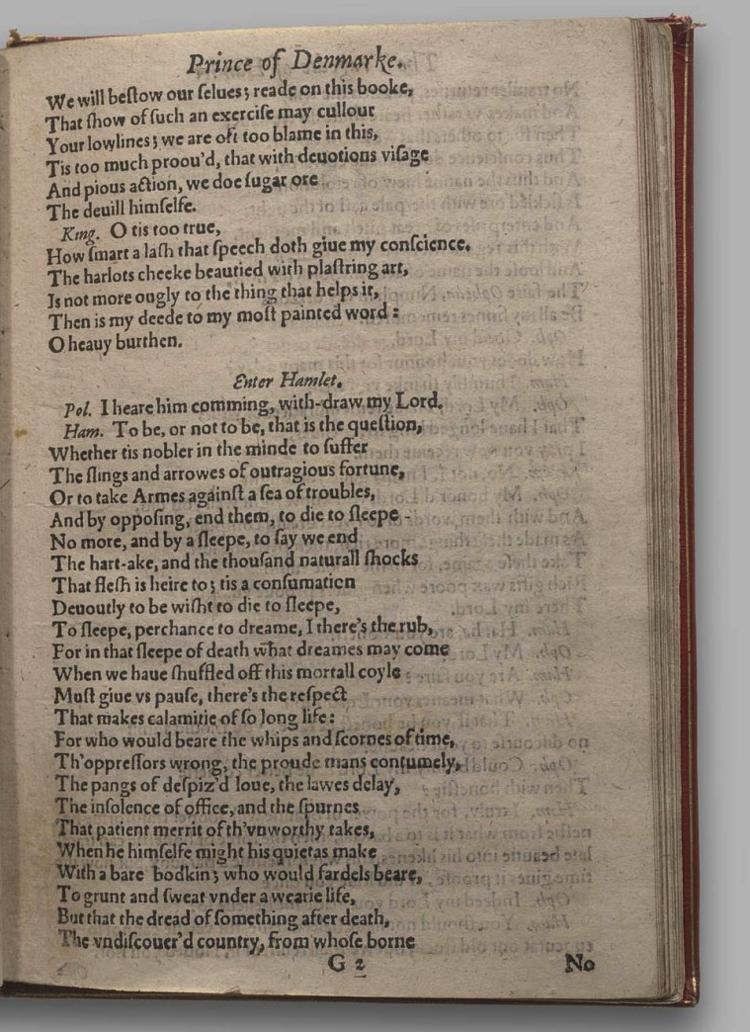 Prince of Denmarke.
We will beſtow our ſelues; reade on this booke,
That ſhow of ſuch an exerciſe may cullour
Your lowlines; we are oft too blame in this,
Tis too much proou'd, that with deuotions viſage
And pious action, we doe ſugar ore
The deuill himſelfe.
King. O tis too true,
How ſmart a laſh that ſpeech doth giue my conſcience.
The harlots cheeke beautied with plaſtring art,
Is not more ougly to the thing that helps it,
Then is my deede to my moſt painted word:
O heauy burthen.
Enter Hamlet.
Pol. I heare him comming, with-draw my Lord.
Ham. To be, or not to be, that is the queſtion,
Whether tis nobler in the minde to ſuffer
The ſlings and arrowes of outragious fortune,
Or to take Armes againſt a ſea of troubles,
And by oppoſing, end them, to die to ſleepe
No more, and by a ſleepe, to ſay we end
The hart-ake, and the thouſand naturall ſhocks
That fleſh is heire to; tis a conſumation
Deuoutly to be wiſht to die to ſleepe,
To ſleepe, perchance to dreame, I there's the rub,
For in that ſleepe of death what dreames may come
When we haue ſhuffled off this mortall coyle
Muſt giue vs pauſe, there's the reſpect
That makes calamitie of ſo long life:
For who would beare the whips and ſcornes of time,
Th'oppreſſors wrong, the proude mans contumely,
The pangs of deſpiz'd loue, the lawes delay,
The inſolence of office, and the ſpurnes
That patient merrit of th'vnworthy takes,
When he himſelfe might his quietas make
With a bare bodkin; who would fardels beare,
To grunt and ſweat vnder a wearie life,
But that the dread of ſomething after death,
The vndiſcouer'd country, from whoſe borne
G 2 No